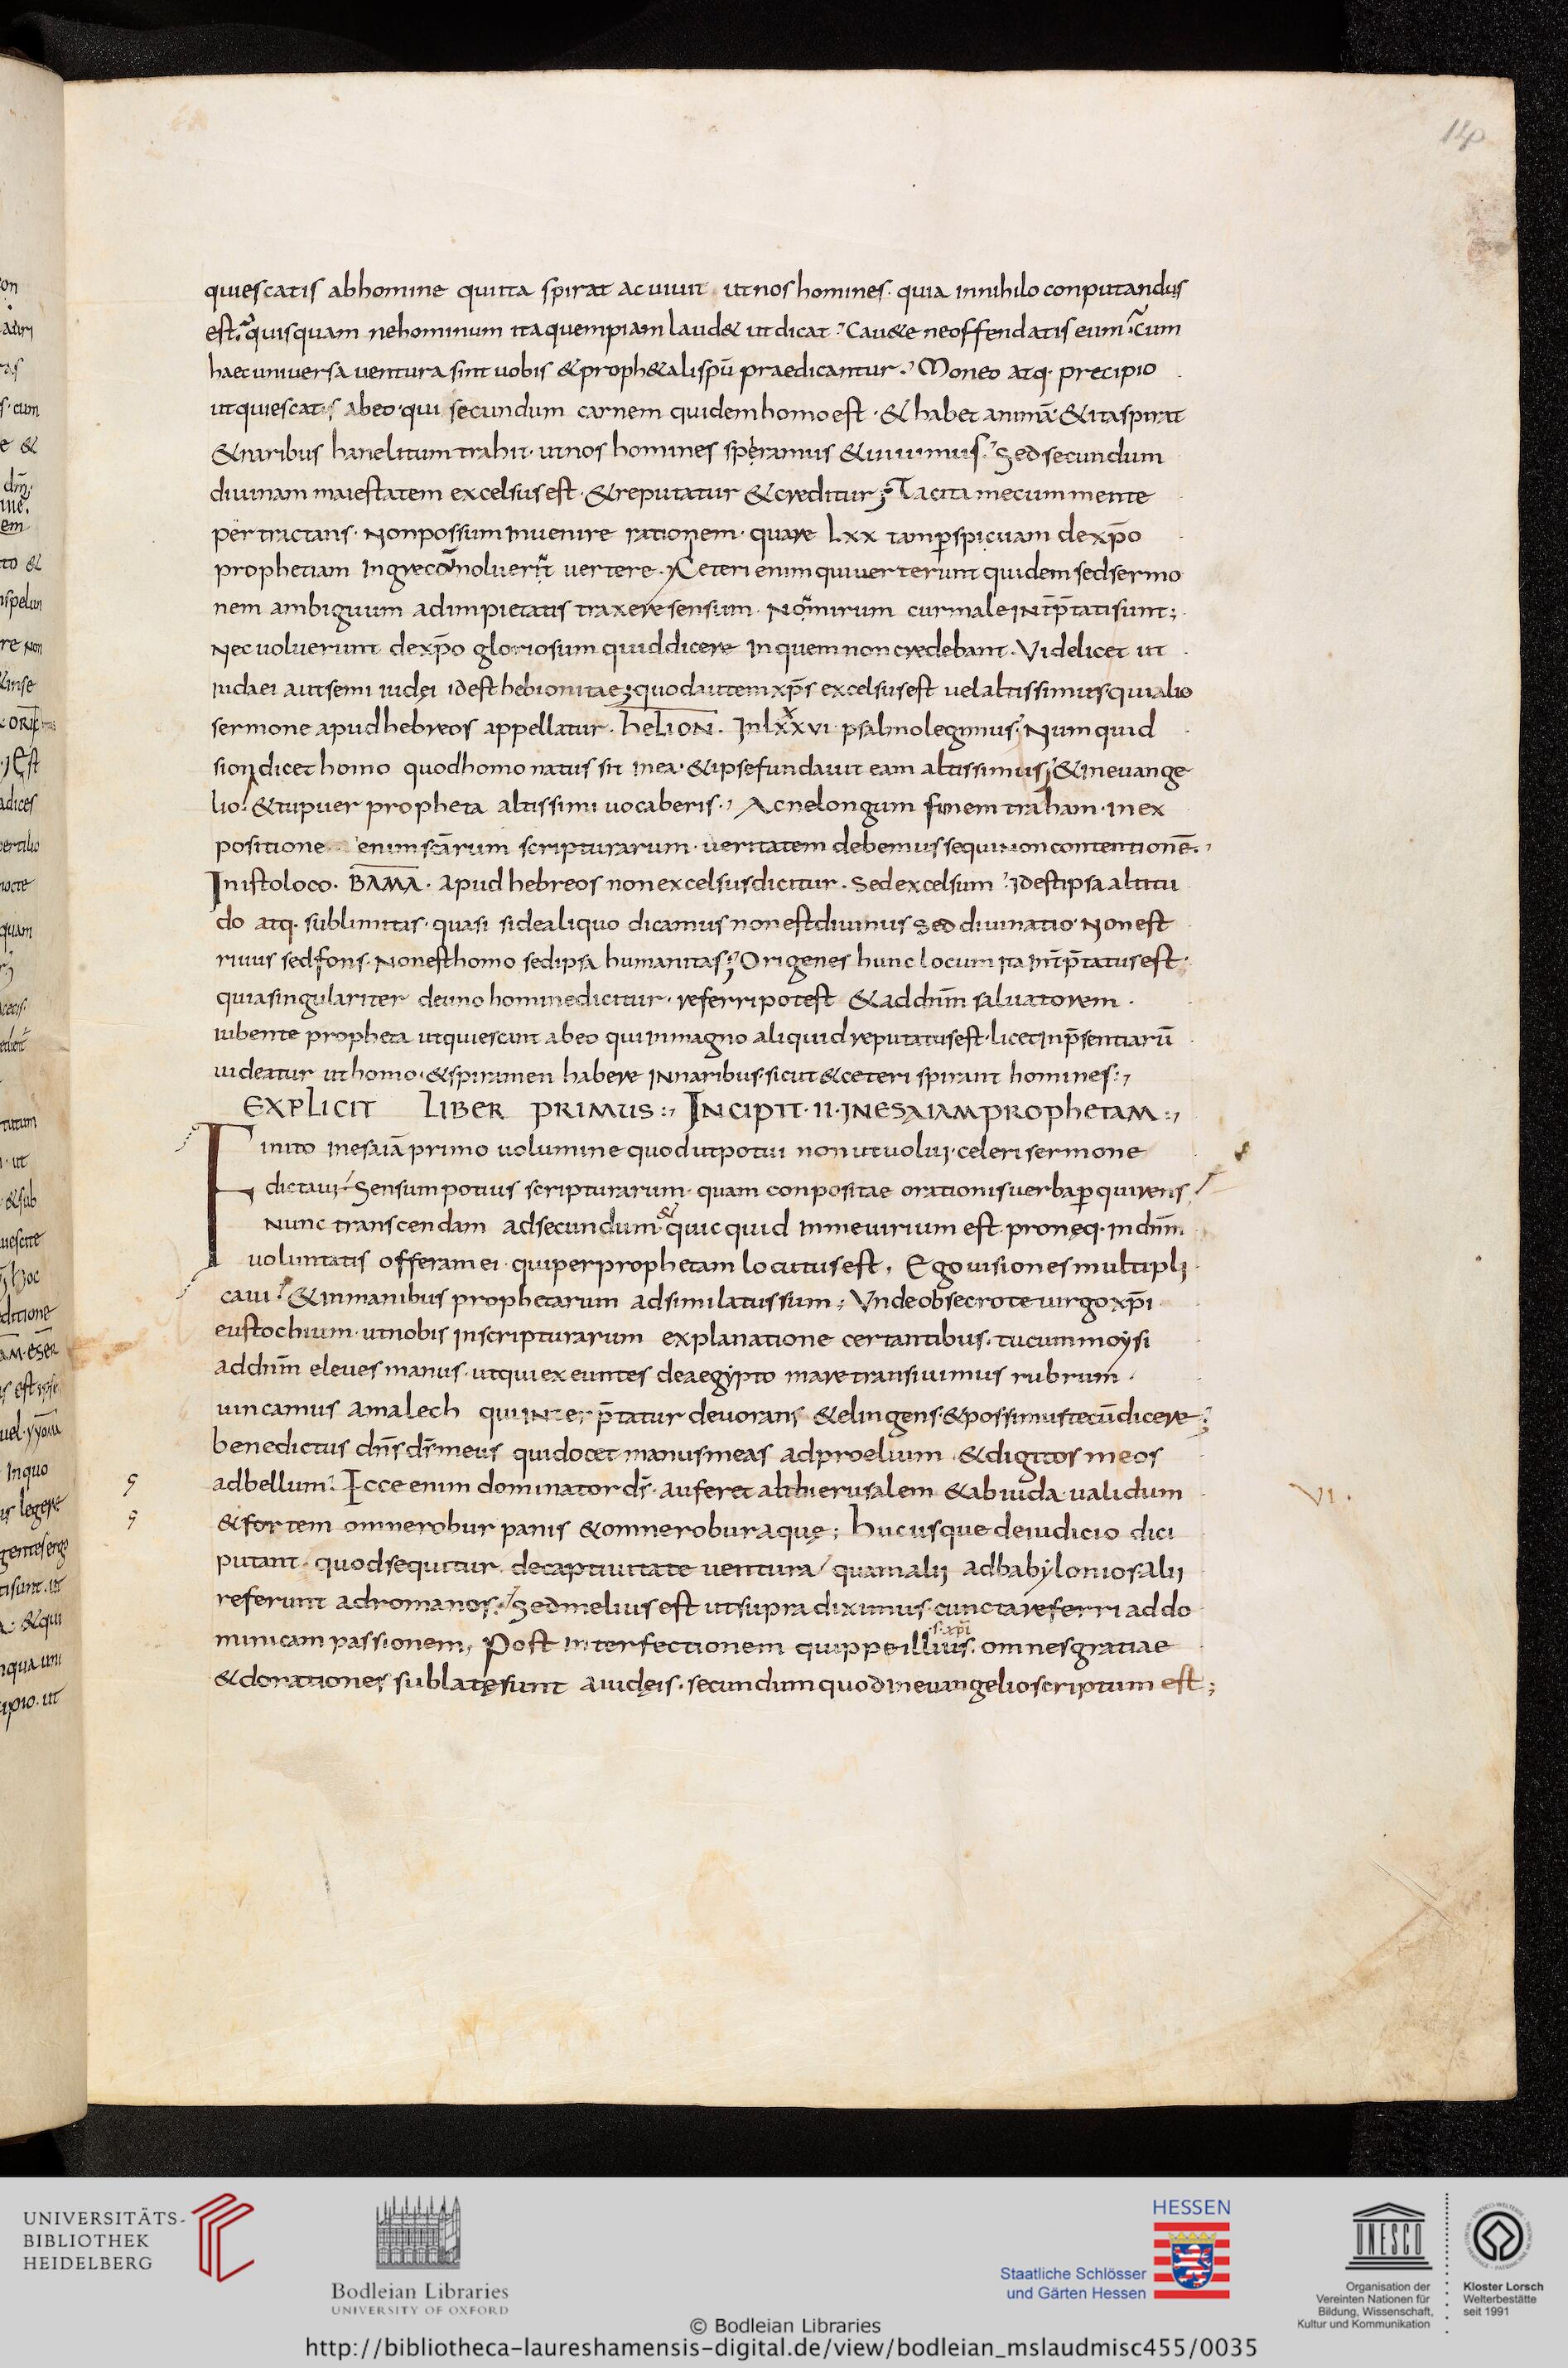 14
quiescatis abhomine quiita spirat ac uiuit utnos homines · quia innihilo conputandus
est · quisquam nehominum itaquempiam laud& utdicat · Cau&e neoffendatis eum · Cum
haec uniuersa uentura sint uobis &proph&alispū praedicantur · Moneo atq· precipio
utquiescatis abeo · qui secundum carnem quidem homo est · & habet animā · &itaspirat
&naribus hanelitum trahit · utnos homines speramus &uiuimus · Sed secundum
diuinam maiestatem excelsus est · &reputatur &creditur ; Tacita mecum mente
pertractans · Nonpossum inuenire rationem · quare Lxx tamp̱spicuam dexp̄o
prophetiam ingreco noluer̄t uertere · Ceteri enim quiuerterunt quidem sedsermo
nem ambiguum adimpietatis traxere sensum · No mirum curmale int̄p̄tatisunt ;
Nec uoluerunt dexp̄o gloriosum quiddicere inquem noncredebant · Videlicet ut
iudaei autsemi iudęi idest hebionitae ; quodautem xp̄s excelsus est uelaltissimus quialio
sermone apud hebreos appellatur · heLION · Inlxxxvi psalmo legimus · Numquid
sion dicet homo quodhomo natus sit inea · &ipsefundauit eam altissimus ; &ineuange
lio · &tupuer propheta altissimi uocaberis · Acnelongum funem traham · inex
positione enim sc̄arum scripturarum · ueritatem debemus sequi non contentionē ·
Inistoloco · BAMA · apud hebreos nonexcelsus dicitur · Sed excelsum · idest ipsa altitu
do atq· sublimitas · quasi sidealiquo dicamus nonest diuinus sed diuinatio · Nonest
riuus sed fons · Nonest homo sedipsa humanitas ; Origenes hunc locum ita int̄p̄tatus est ·
quiasingulariter deuno homine dicitur · referripotest &addn̄m saluatorem ·
iubente propheta utquiescant abeo quiinmagno aliquid reputatus est · licet inp̄sentiarū
uideatur uthomo · &spiramen habere innaribus · sicut &ceteri spirant homines · ,
EXPLICIT LIBER PRIMUS : , INCIPIT · II · INESAIAM PROPHETAM : ,
Finito inesaiā primo uolumine quod utpotui nonutuolui · celeri sermone
dictaui · Sensum potius scripturarum · quam conpositae orationis uerbap̱quirens
Nunc transcendam adsecundum & quicquid inmeuirium est proneq· indn̄m
uoluntatis offeram ei · quiperprophetam locutus est , Ego uisiones multipli
caui · &inmanibus prophetarum adsimilatus sum ; Vnde obsecro te uirgo xp̄i
eustochium · utnobis inscripturarum explanatione certantibus · tucum moysi
addn̄m eleues manus · utqui exeuntes deaegypto mare transiuimus rubrum ·
uincamus amalech quiinterp̄tatur deuorans &elingens · &possimus tecū dicere ;
benedictus dn̄s ds̄ meus quidocet manus meas adproelium &digitos meos
adbellum · Ecce enim dominator ds̄ · auferet abhierusalem &abiuda · ualidum
VI ·
&fortem omne robur panis &omne robur aquę ; hucusque deiudicio dici
putant · quodsequitur decaptiuitate uentura / quamalii adbabylonios alii
referunt adromanos · Sed melius est utsupra diximus cuncta referri addo
minicam passionem , Post interfectionem quippe illius · omnes gratiae
·s· xp̄i
&donationes sublatę sunt aiudęis · secundum quod ineuangelio scriptum est ;
UNIVERSITÄTS-
BIBLIOTHEK
HEIDELBERG
Bodleian Libraries
UNIVERSITY OF OXFORD
HESSEN
Staatliche Schlösser
und Gärten Hessen
UNESCO
Organisation der
Vereinten Nationen für
Bildung, Wissenschaft,
Kultur und Kommunikation
Kloster Lorsch
Welterbestätte
seit 1991
© Bodleian Libraries
http://bibliotheca-laureshamensis-digital.de/view/bodleian_mslaudmisc455/0035